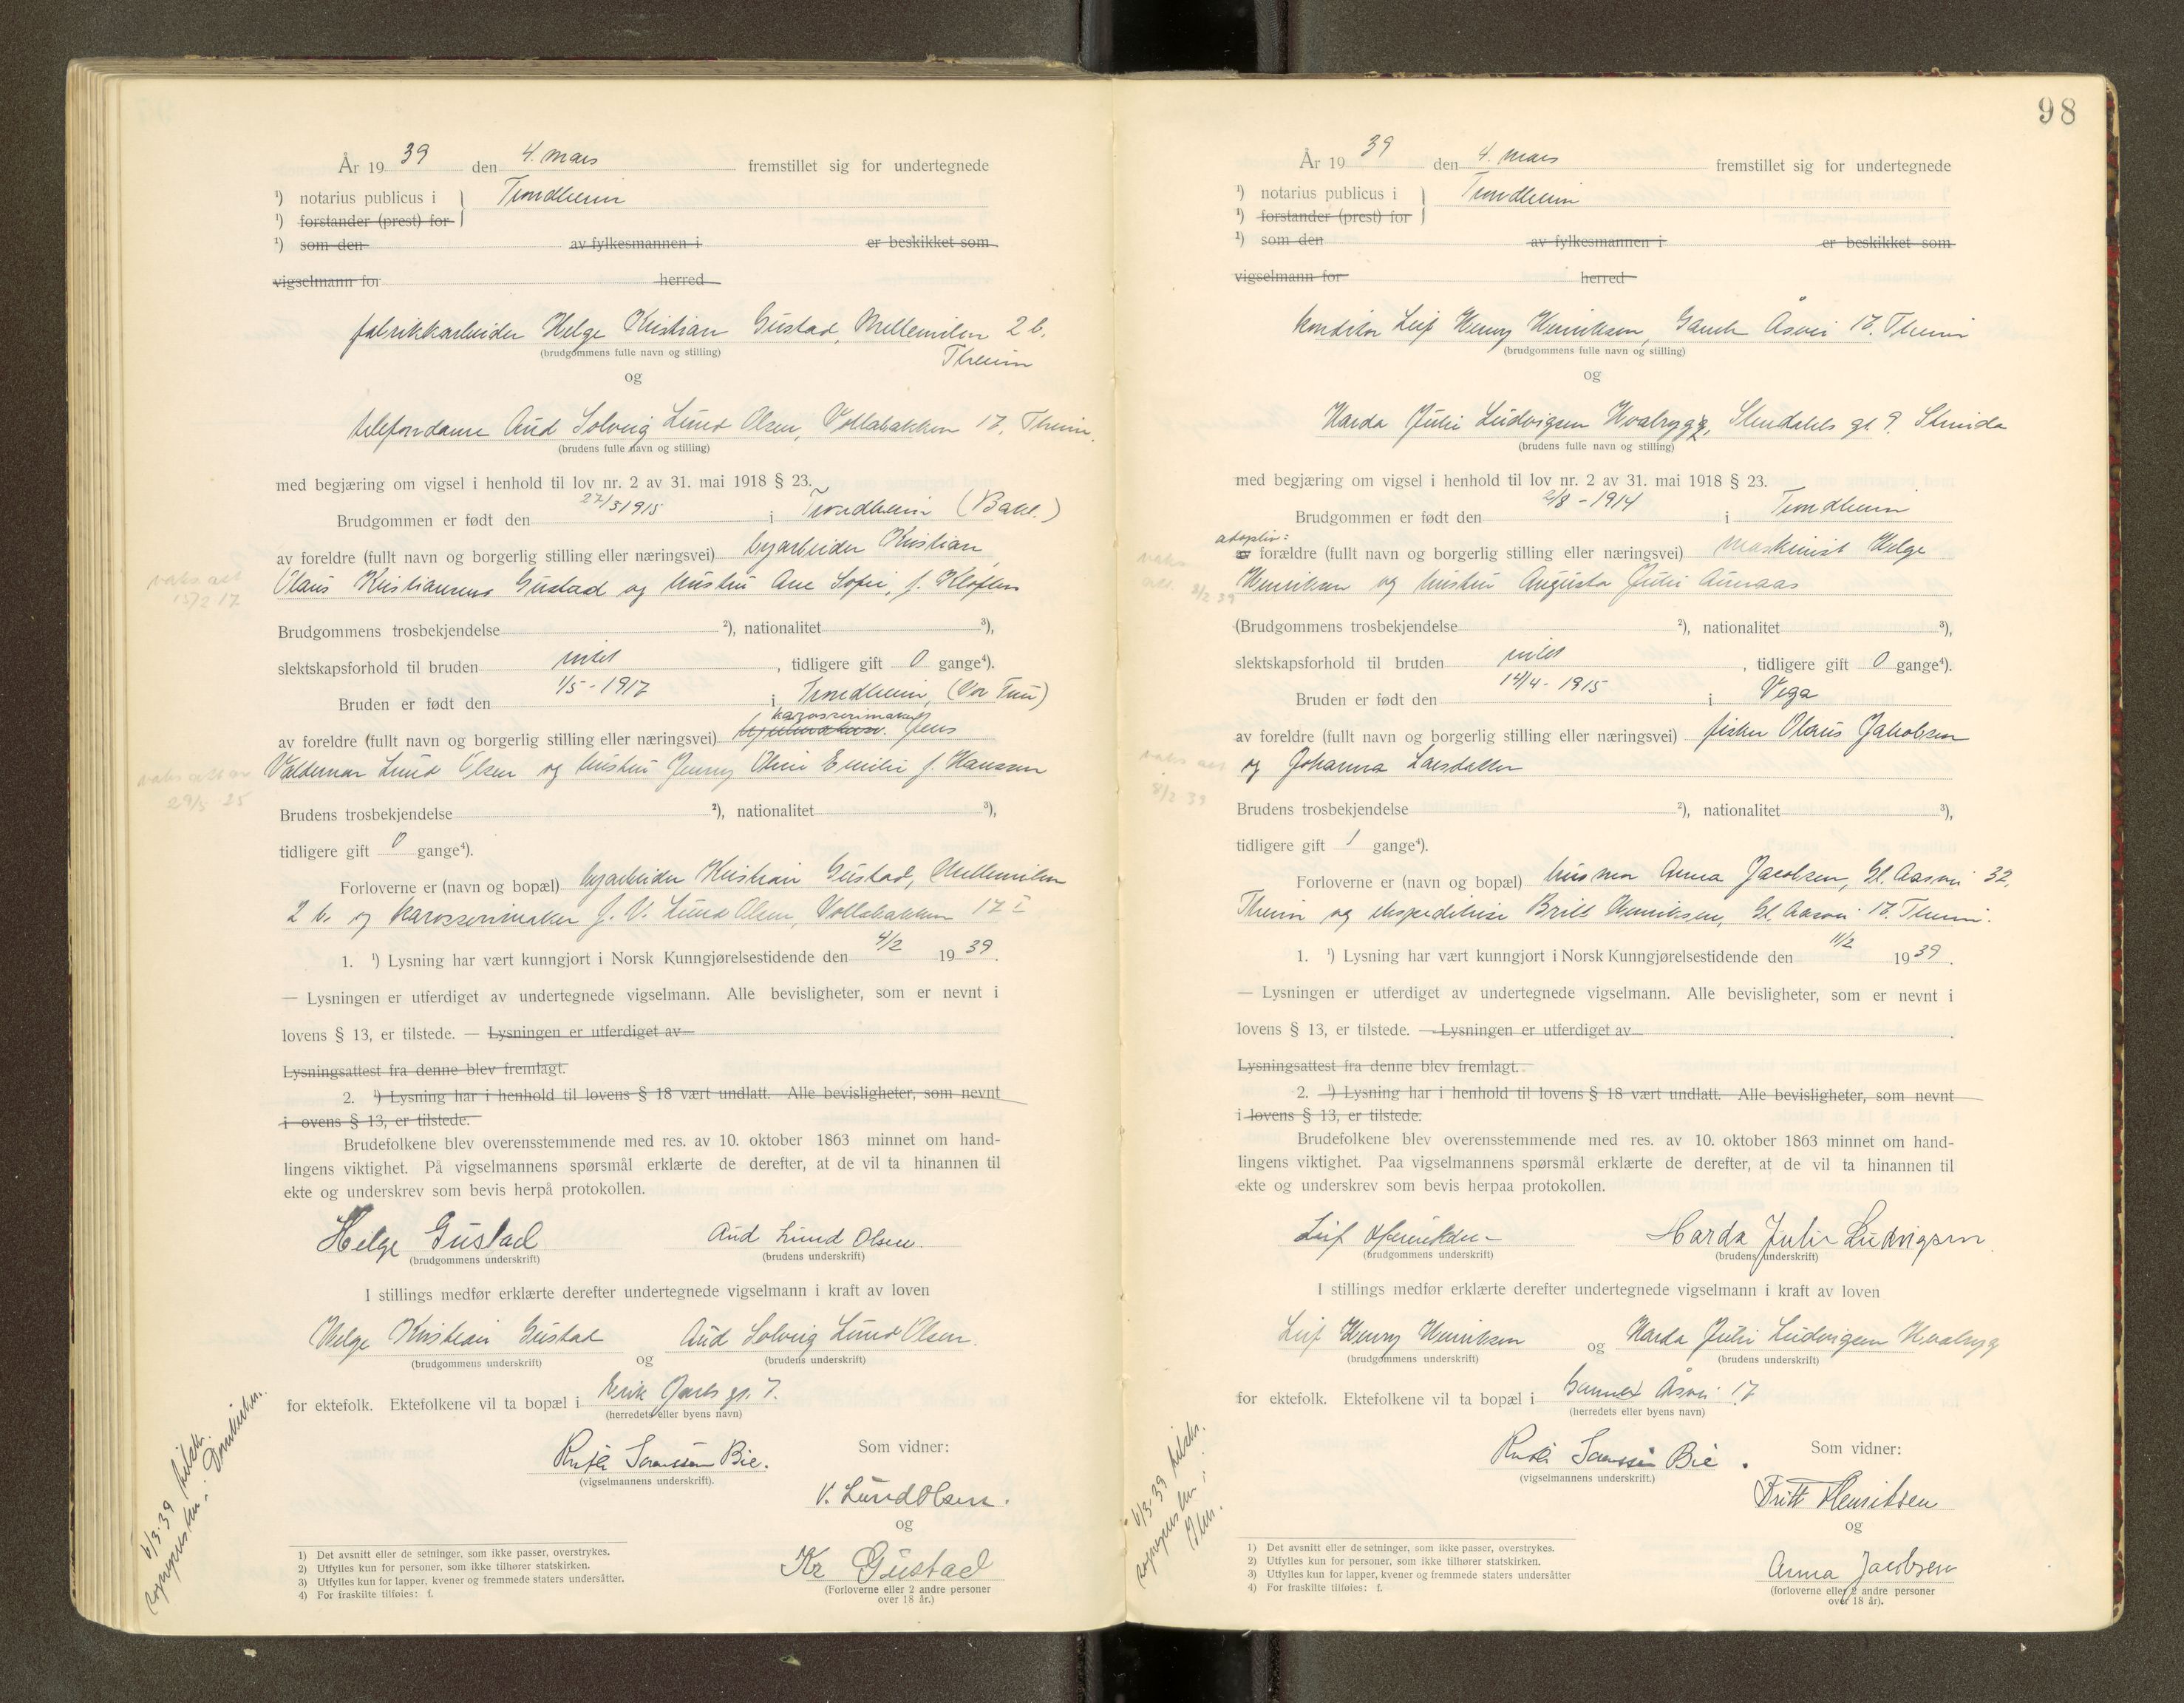 År 19 39 den 4. mars fremstillet sig for undertegnede
¹) notarius publicus i } Trondheim
¹) forstander (prest) for
¹) som den av fylkesmannen i er beskikket som
vigselmann for herred
fabrikkarbeider Helge Kristian Gustad, Mellemilen 2 b.
(brudgommens fulle navn og stilling)
Theim
og
telefondame Aud Solveig Lund Olsen, Vollabakken 17, Theim.
(brudens fulle navn og stilling)
med begjæring om vigsel i henhold til lov nr. 2 av 31. mai 1918 § 23.
Brudgommen er født den 27/3 1915 i Trondheim (Bakl.)
av foreldre (fullt navn og borgerlig stilling eller næringsvei) byarbeider Kristian
Olaus Kristiansens Gustad og hustru Ane Sofie, f. Kløften
Brudgommens trosbekjendelse ²), nationalitet ³),
slektskapsforhold til bruden intet , tidligere gift 0 gange⁴).
Bruden er født den 1/5 - 1917 i Trondheim, (Vor Frue)
karosserimaker
av foreldre (fullt navn og borgerlig stilling eller næringsvei) Jens
Valdemar Lund Olsen og hustru Jenny Oline Emilie f. Hanssen
Brudens trosbekjendelse ²), nationalitet ³),
tidligere gift 0 gange⁴).
Forloverne er (navn og bopæl) byarbeider Kristian Gustad, Mellemilen
2 b. og karosserimaker J. V. Lund Olsen, Vollabakken 17 I
1. ¹) Lysning har vært kunngjort i Norsk Kunngjørelsestidende den 4/2 19 39.
— Lysningen er utferdiget av undertegnede vigselmann. Alle bevisligheter, som er nevnt i
lovens § 13, er tilstede. — Lysningen er utferdiget av
Lysningsattest fra denne blev fremlagt.
2. ¹) Lysning har i henhold til lovens § 18 vært undlatt. Alle bevisligheter, som nevnt
i ovens § 13, er tilstede.
Brudefolkene blev overensstemmende med res. av 10. oktober 1863 minnet om hand-
lingens viktighet. På vigselmannens spørsmål erklærte de derefter, at de vil ta hinannen til
ekte og underskrev som bevis herpå protokollen.
Helge Gustad Aud Lund Olsen.
(brudgommens underskrift) (brudens underskrift)
I stillings medfør erklærte derefter undertegnede vigselmann i kraft av loven
Helge Kristian Gustad og Aud Solveig Lund Olsen.
(brudgommens underskrift) (brudens underskrift)
for ektefolk. Ektefolkene vil ta bopæl i Erik Jarls gt. 7.
(herredets eller byens navn)
Sørenssen Bie. Som vidner:
(vigselmannens underskrift).
V. Lund Olsen.
og
Kr Gustad
(Forloverne eller 2 andre personer
over 18 år.)
1) Det avsnitt eller de setninger, som ikke passer, overstrykes.
2) Utfylles kun for personer, som ikke tilhører statskirken.
3) Utfylles kun for lapper, kvener og fremmede staters undersåtter.
4) For fraskilte tilføies: f.
6/3-39
98
År 19 39 den 4. mars fremstillet sig for undertegnede
¹) notarius publicus i } Trondheim
¹) forstander (prest) for
¹) som den av fylkesmannen i er beskikket som
vigselmann for herred
konditor Leif Henry Henriksen, Gamle Åsvei 17. Theim
(brudgommens fulle navn og stilling)
og
Harda Julie Ludvigsen Hvalrygg, Stendahls gt 9. Strinda
(brudens fulle navn og stilling)
med begjæring om vigsel i henhold til lov nr. 2 av 31. mai 1918 § 23.
Brudgommen er født den 2/8 - 1914 i Trondheim
adoptiv:
forældre (fullt navn og borgerlig stilling eller næringsvei) maskinist Helge
Henriksen og hustru Augusta Julie Aunaas
(Brudgommens trosbekjendelse ²), nationalitet ³),
slektskapsforhold til bruden intet , tidligere gift 0 gange⁴).
Bruden er født den 14/4 - 1915 i Vega
av foreldre (fullt navn og borgerlig stilling eller næringsvei) fisker Olaus Jakobsen
og Johanna Larsdatter
Brudens trosbekjendelse ²), nationalitet ³),
tidligere gift 1 gange⁴).
Forloverne er (navn og bopæl) husmor Anna Jacobsen, Gl. Aasvei 32,
Theim og ekspeditrise Britt Henriksen, Gl. Aasvei 17. Theim.
1. ¹) Lysning har vært kunngjort i Norsk Kunngjørelsestidende den 11/2 19 39.
— Lysningen er utferdiget av undertegnede vigselmann. Alle bevisligheter, som er nevnt i
lovens § 13, er tilstede. — Lysningen er utferdiget av .
Lysningsattest fra denne blev fremlagt.
2. ¹) Lysning har i henhold til lovens § 18 vært undlatt. Alle bevisligheter, som nevnt
i lovens § 13, er tilstede.
Brudefolkene blev overensstemmende med res. av 10. oktober 1863 minnet om hand-
lingens viktighet. Paa vigselmannens spørsmål erklærte de derefter, at de vil ta hinannen til
ekte og underskrev som bevis herpaa protokollen.
Leif Henriksen Harda Julie Ludvigsen
(brudgommens underskrift) (brudens underskrift)
I stillings medfør erklærte derefter undertegnede vigselmann i kraft av loven
Leif Henry Henriksen og Harda Julie Ludvigsen Hvalrygg
(brudgommens underskrift) (brudens underskrift)
for ektefolk. Ektefolkene vil ta bopæl i Gamle Åsvei 17
(herredets eller byens navn)
Sørenssen Bie. Som vidner:
(vigselmannens underskrift.)
Britt Henriksen
og
Anna Jacobsen
(forloverne eller 2 andre personer
over 18 år).
1) Det avsnitt eller de setninger, som ikke passer, overstrykes.
2) Utfylles kun for personer, som ikke tilhører statskirken.
3) Utfylles kun for lapper, kvener og fremmede staters undersåtter
4) For fraskilte tilføies: f.
6/3-39